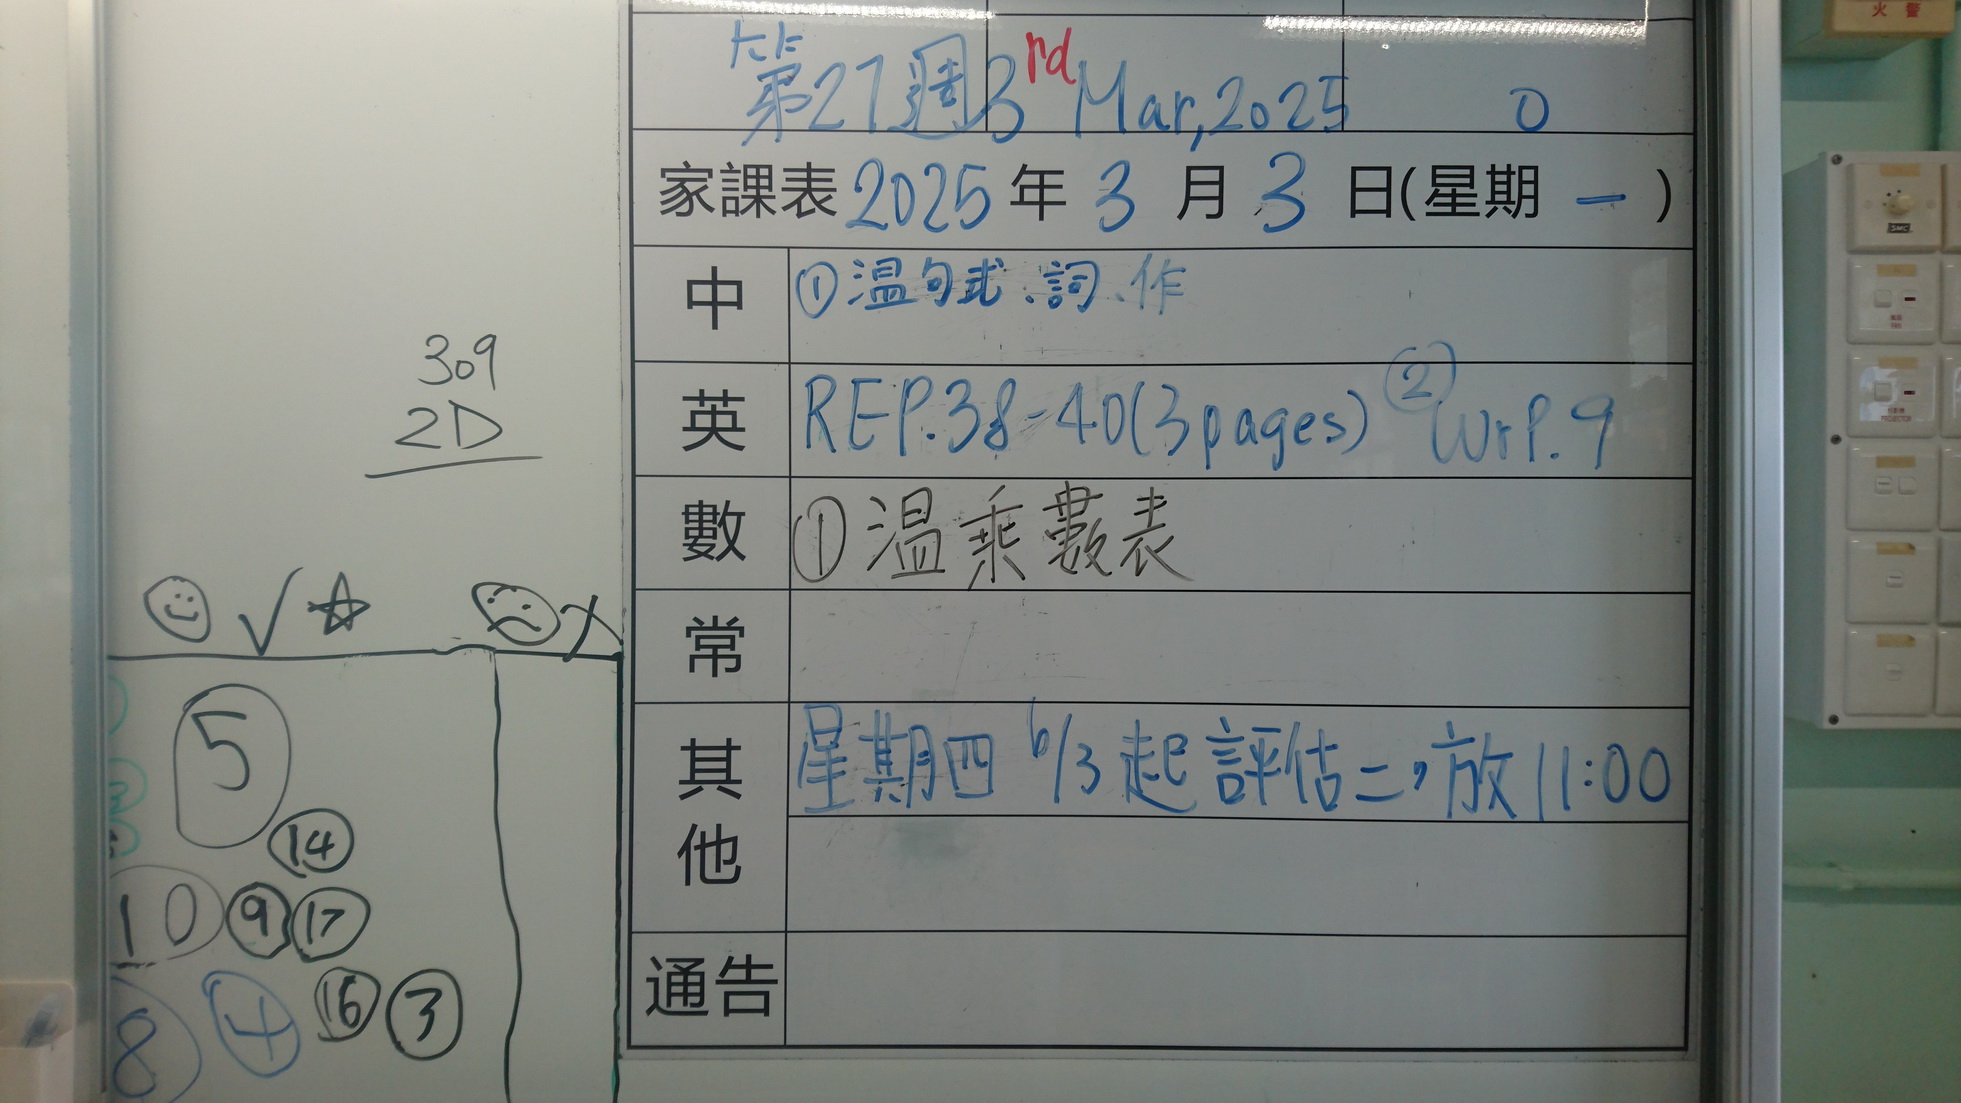 第27週 3rd Mar, 2025 0
家課表 2025 年 3 月 3 日(星期 一 )
中 ① 温句式、詞、作
英 REP.38-40(3pages) ② WrP.9
數 ① 温乘數表
常
其他 星期四 6/3 起 評估二，放 11:00
通告
309
2D
5
14
10 9 17
8 4 16 3
火 警
SMC